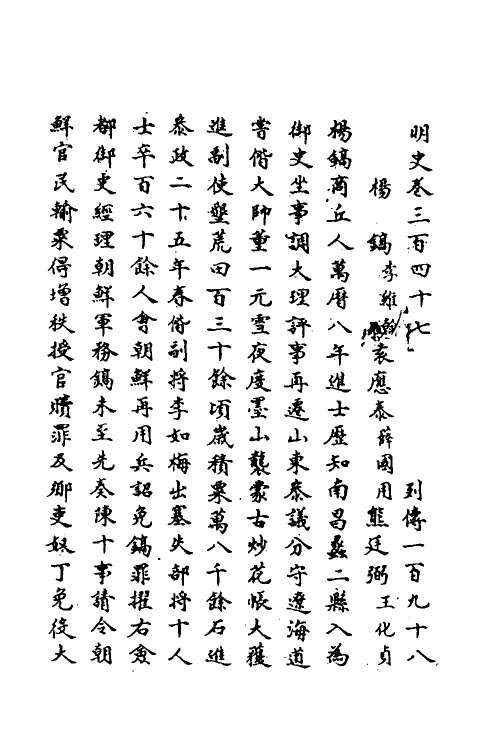 明史卷三百四十七 列傳一百九十八
楊鎬 李維翰 袁應泰 薛國用 熊廷弼 王化貞
楊鎬商丘人萬曆八年進士歷知南昌蠡二縣入為
御史坐事調大理評事再遷山東參議分守遼海道
嘗偕大帥董一元雪夜度墨山襲蒙古炒花帳大獲
進副使墾荒田百三十餘頃歲積粟萬八千餘石進
參政二十五年春偕副將李如梅出塞失部將十人
士卒百六十餘人會朝鮮再用兵詔免鎬罪擢右僉
都御史經理朝鮮軍務鎬未至先奏陳十事請令朝
鮮官民輸粟得增秩授官贖罪及鄉吏奴丁免役大